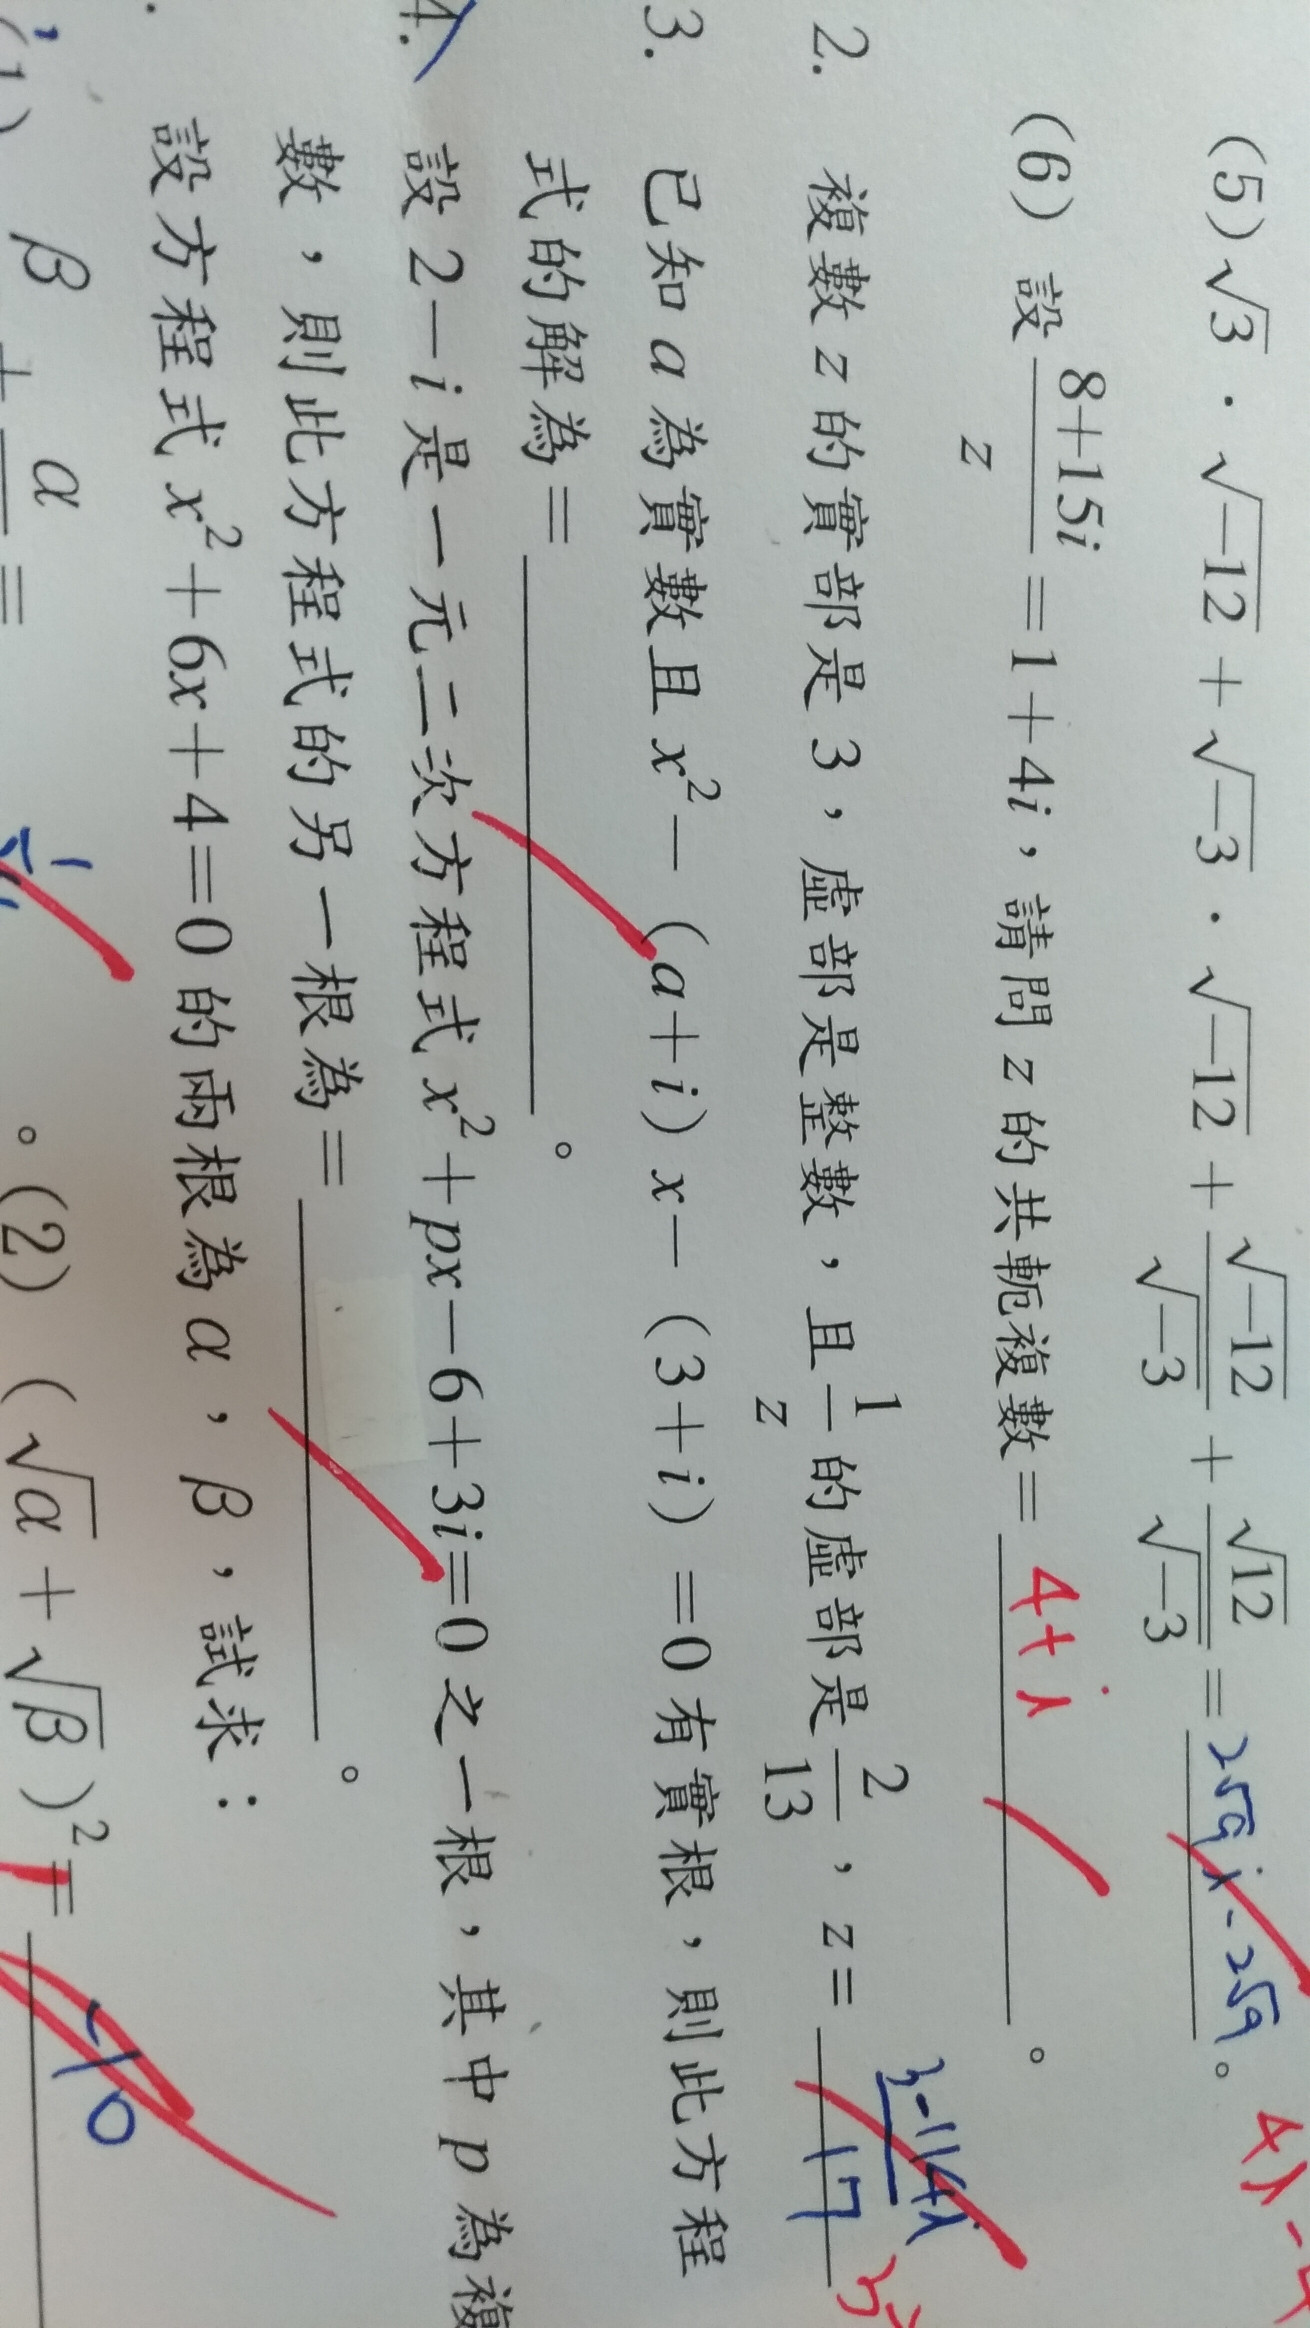 (5) √3 · √-12 + √-3 · √-12 + √-12/√-3 + √12/√-3 = 2√9 i - 2√9 。 4i -
(6) 設 (8+15i)/z = 1+4i，請問 z 的共軛複數 = 4+i 。
2. 複數 z 的實部是 3，虛部是整數，且 1/z 的虛部是 2/13，z = 3-114i / 17
3. 已知 a 為實數且 x² - (a+i) x - (3+i) = 0 有實根，則此方程
式的解為 = 。
4. 設 2-i 是一元二次方程式 x² + px - 6 + 3i = 0 之一根，其中 p 為複
數，則此方程式的另一根為 = 。
設方程式 x² + 6x + 4 = 0 的兩根為 α，β，試求：
(1) β + α = 。(2) (√α + √β)² = -10